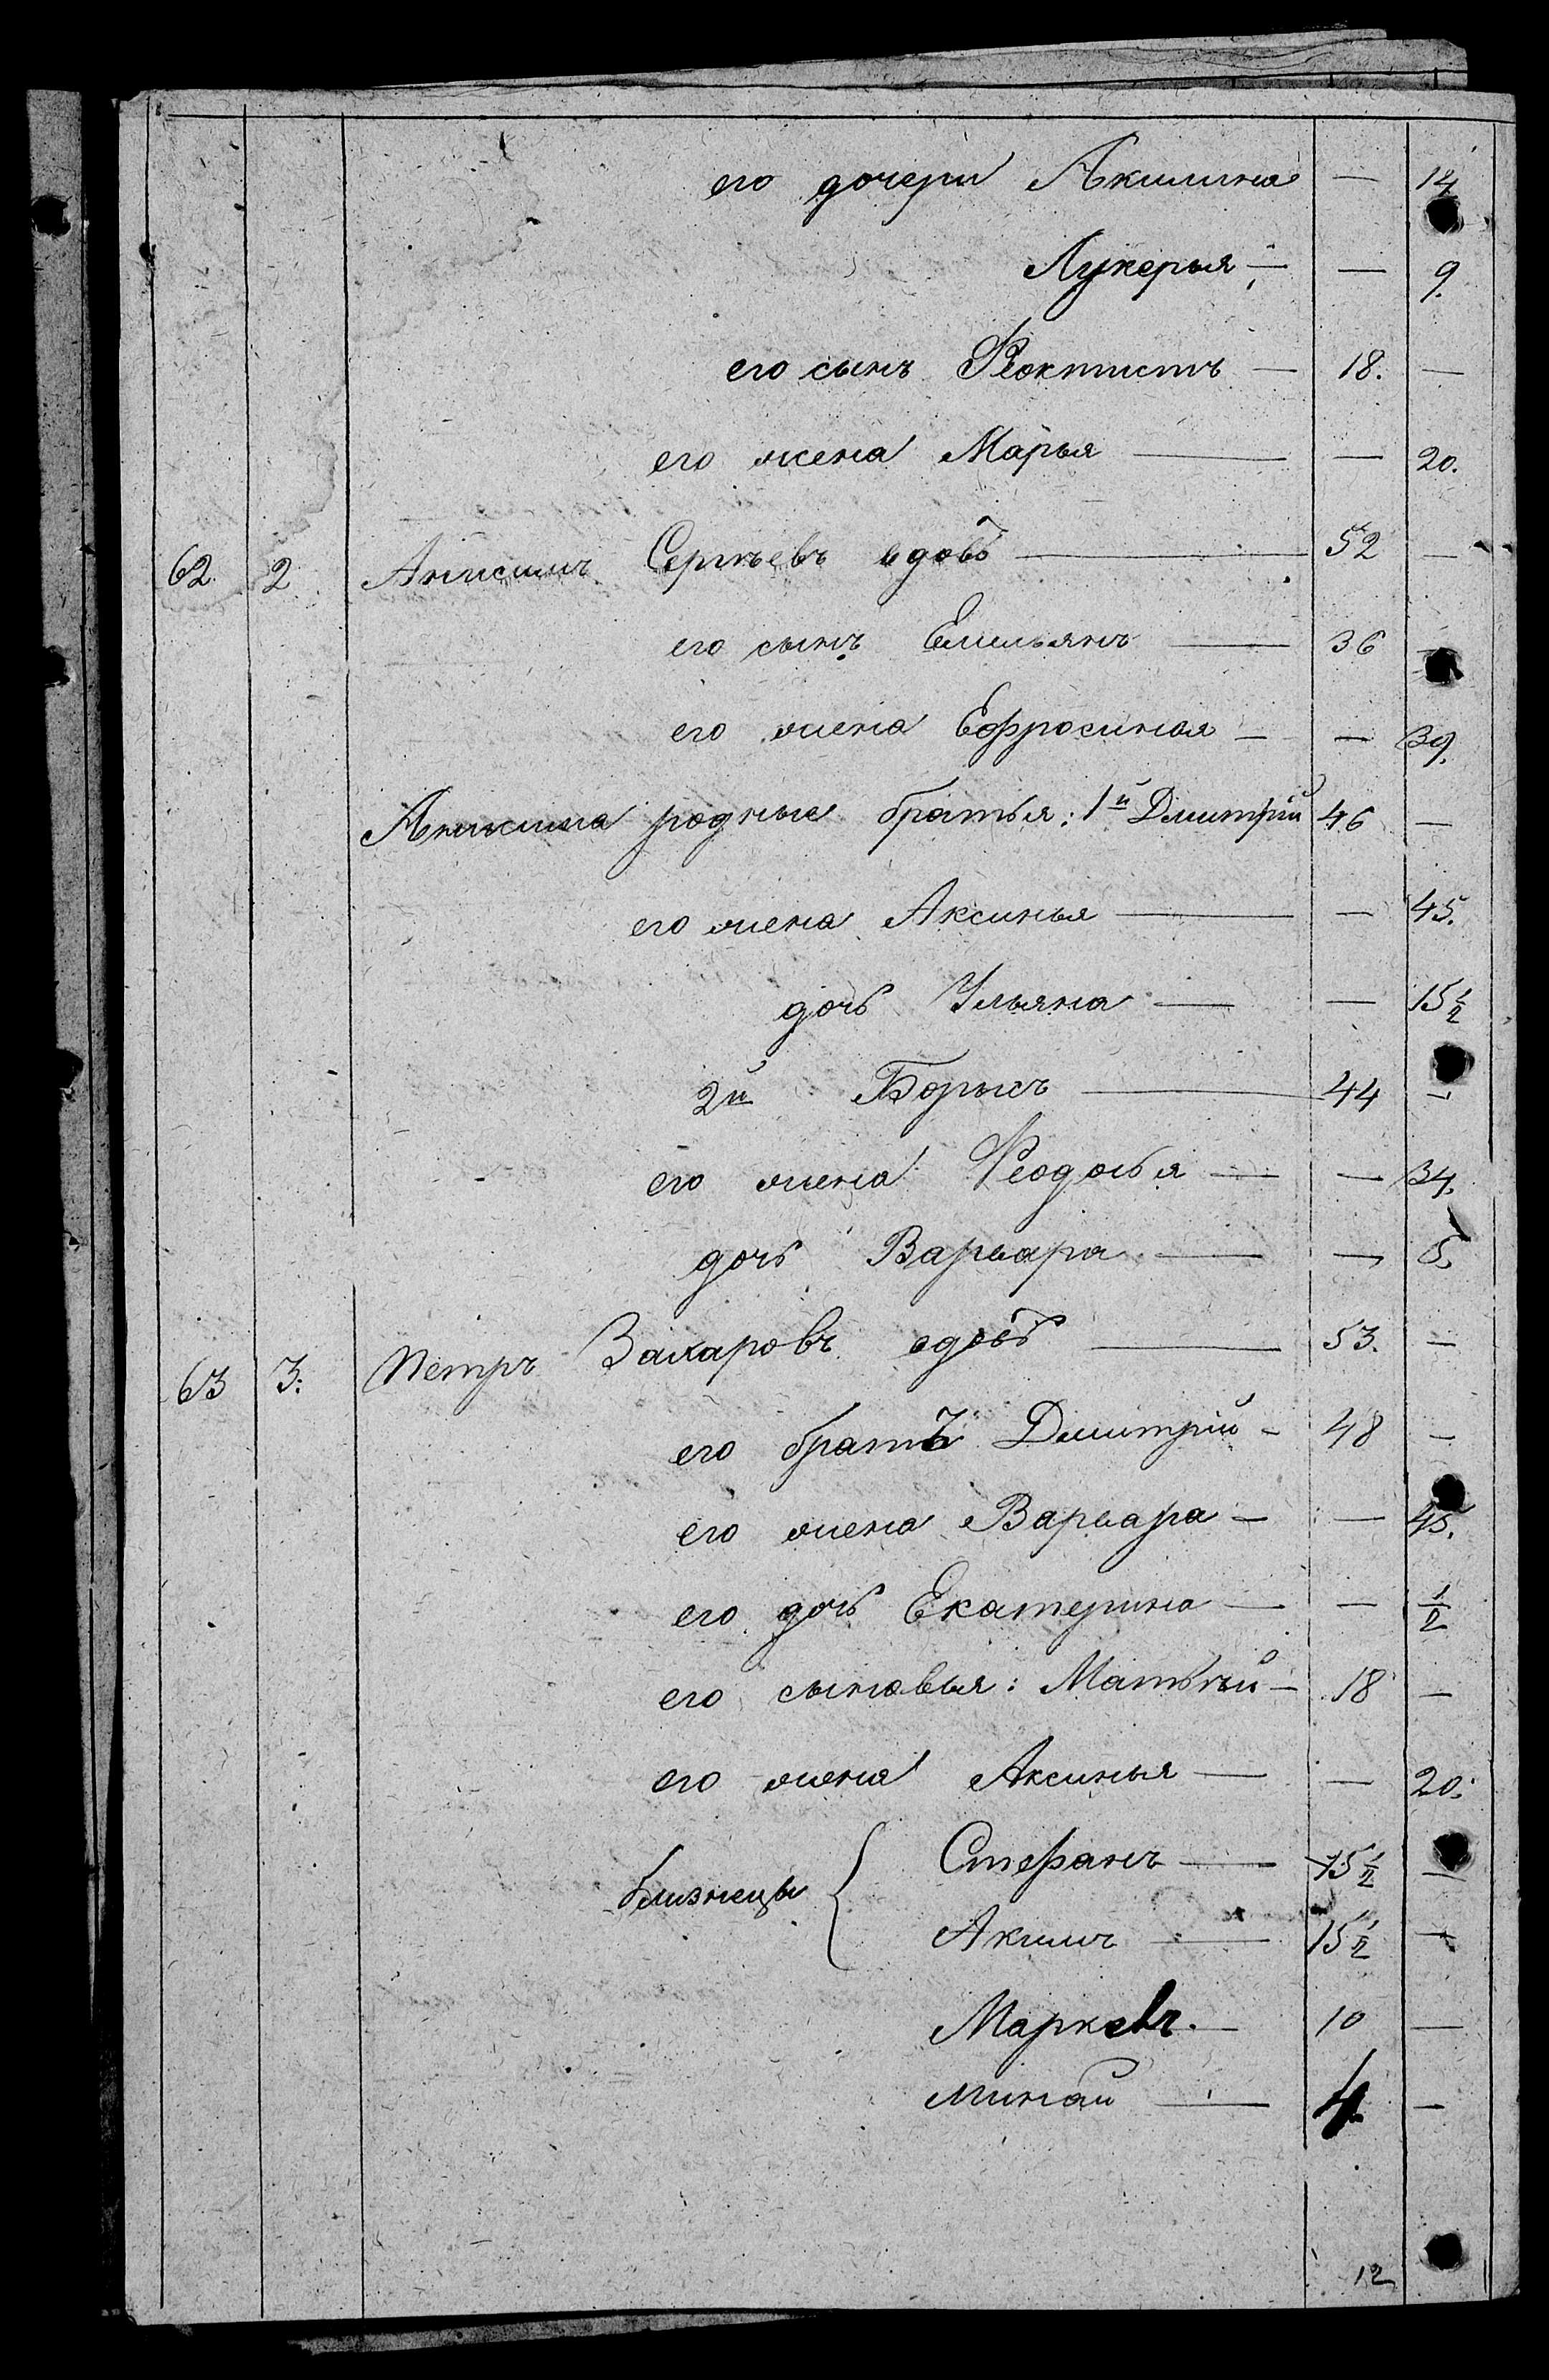 его дочери Акилина — 14
Лукерья — — 9.
его сынъ Ѳеоктистъ — 18. —
его жена Марья — — 20.
62 2 Анисимъ Сергѣевъ вдовъ — 52 —
его сынъ Емильянъ — 36 —
его жена Ефросинья — — 39.
Анисима родные братья: 1й Дмитрій 46 —
его жена Аксинья — — 45.
дочь Ульяна — — 15 1/2
2й Борысъ — 44 —
его жена Ѳеодосья — — 34.
дочь Варвара — — 5.
63 3. Петръ Захаровъ вдовъ — 53. —
его братъ Дмитрій — 48 —
его жена Варвара — — 45.
его дочь Екатерина — — 1/2
его сыновья: Матвѣй — 18 —
его жена Аксинья — — 20.
близнецы { Стефанъ — 15 1/2 —
Акимъ — 15 1/2 —
Маркелъ. — 10 —
Минай — 4. —
12